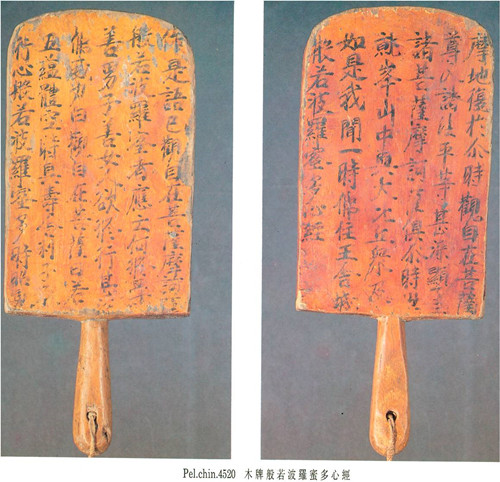 般若波羅蜜多心經
如是我聞一時佛住王舍城
鷲峯山中與大比丘眾及
諸菩薩摩訶薩俱尒時世
尊入諸法平等甚深顯了三
摩地復於尒時觀自在菩薩
行心般若波羅蜜多時照見
五蘊體空時具壽舍利子
佛威力白觀自在菩薩曰若
善男子善女欲修行甚
般若波羅蜜多者應云何修學
作是語已觀自在菩薩摩訶
Pel.chin.4520 木牌般若波羅蜜多心經